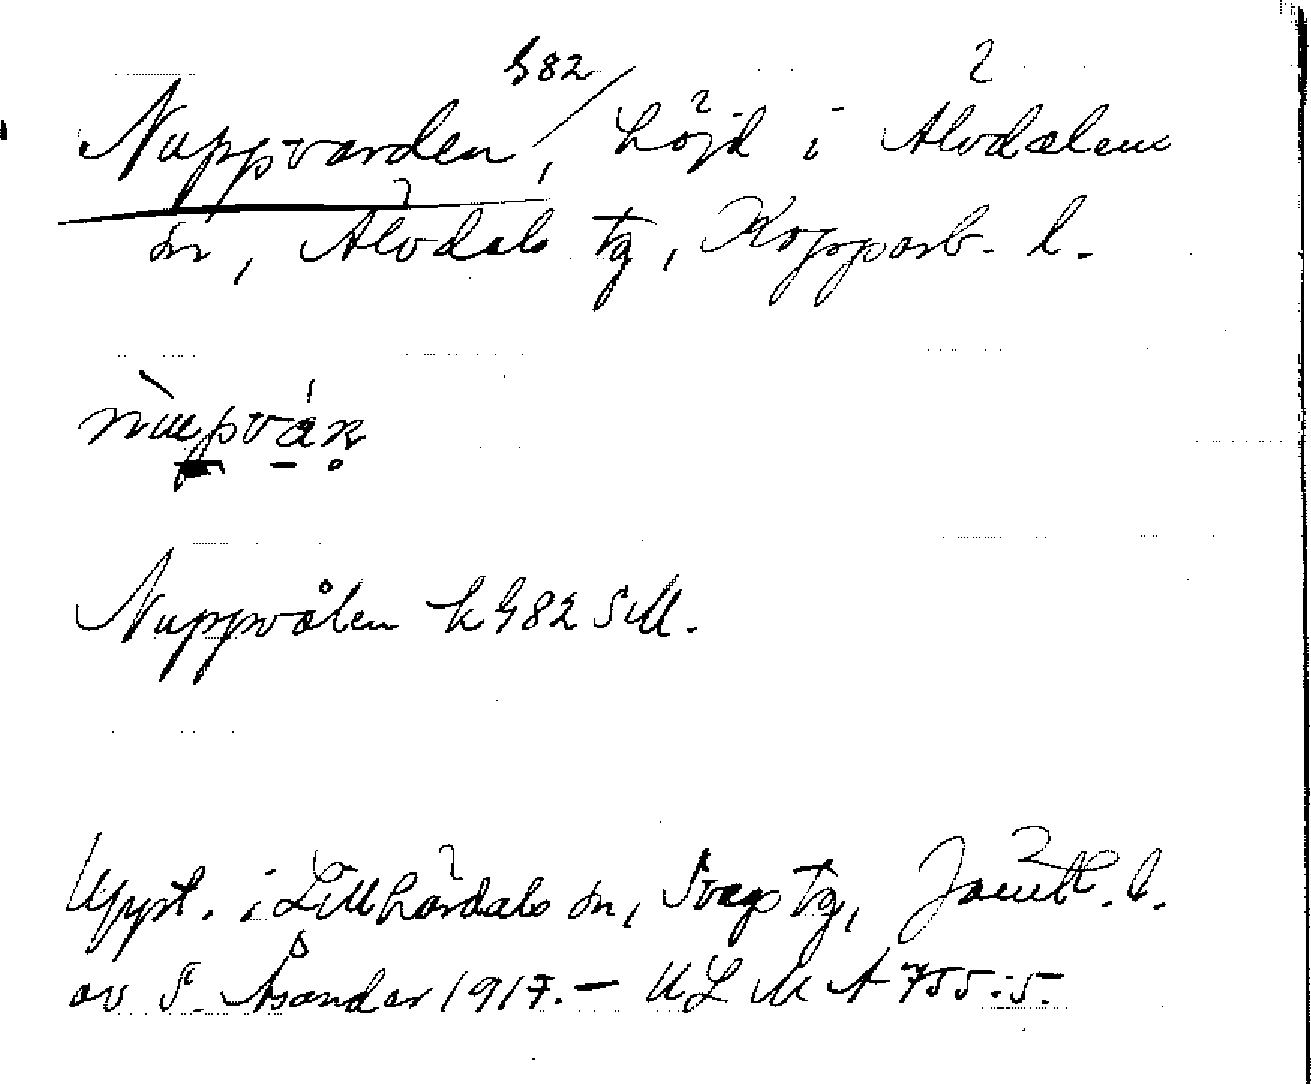 982
Nuppvarden, höjd i Älvdalens
sn, Älvdals tg, Kopparb. l.
Nuppvålen h 982 SM.
Uppt. i Lillhärdals sn, Svegs tg, Jämtl. l.
av S. Åsander 1917. – ULMA 755:5.